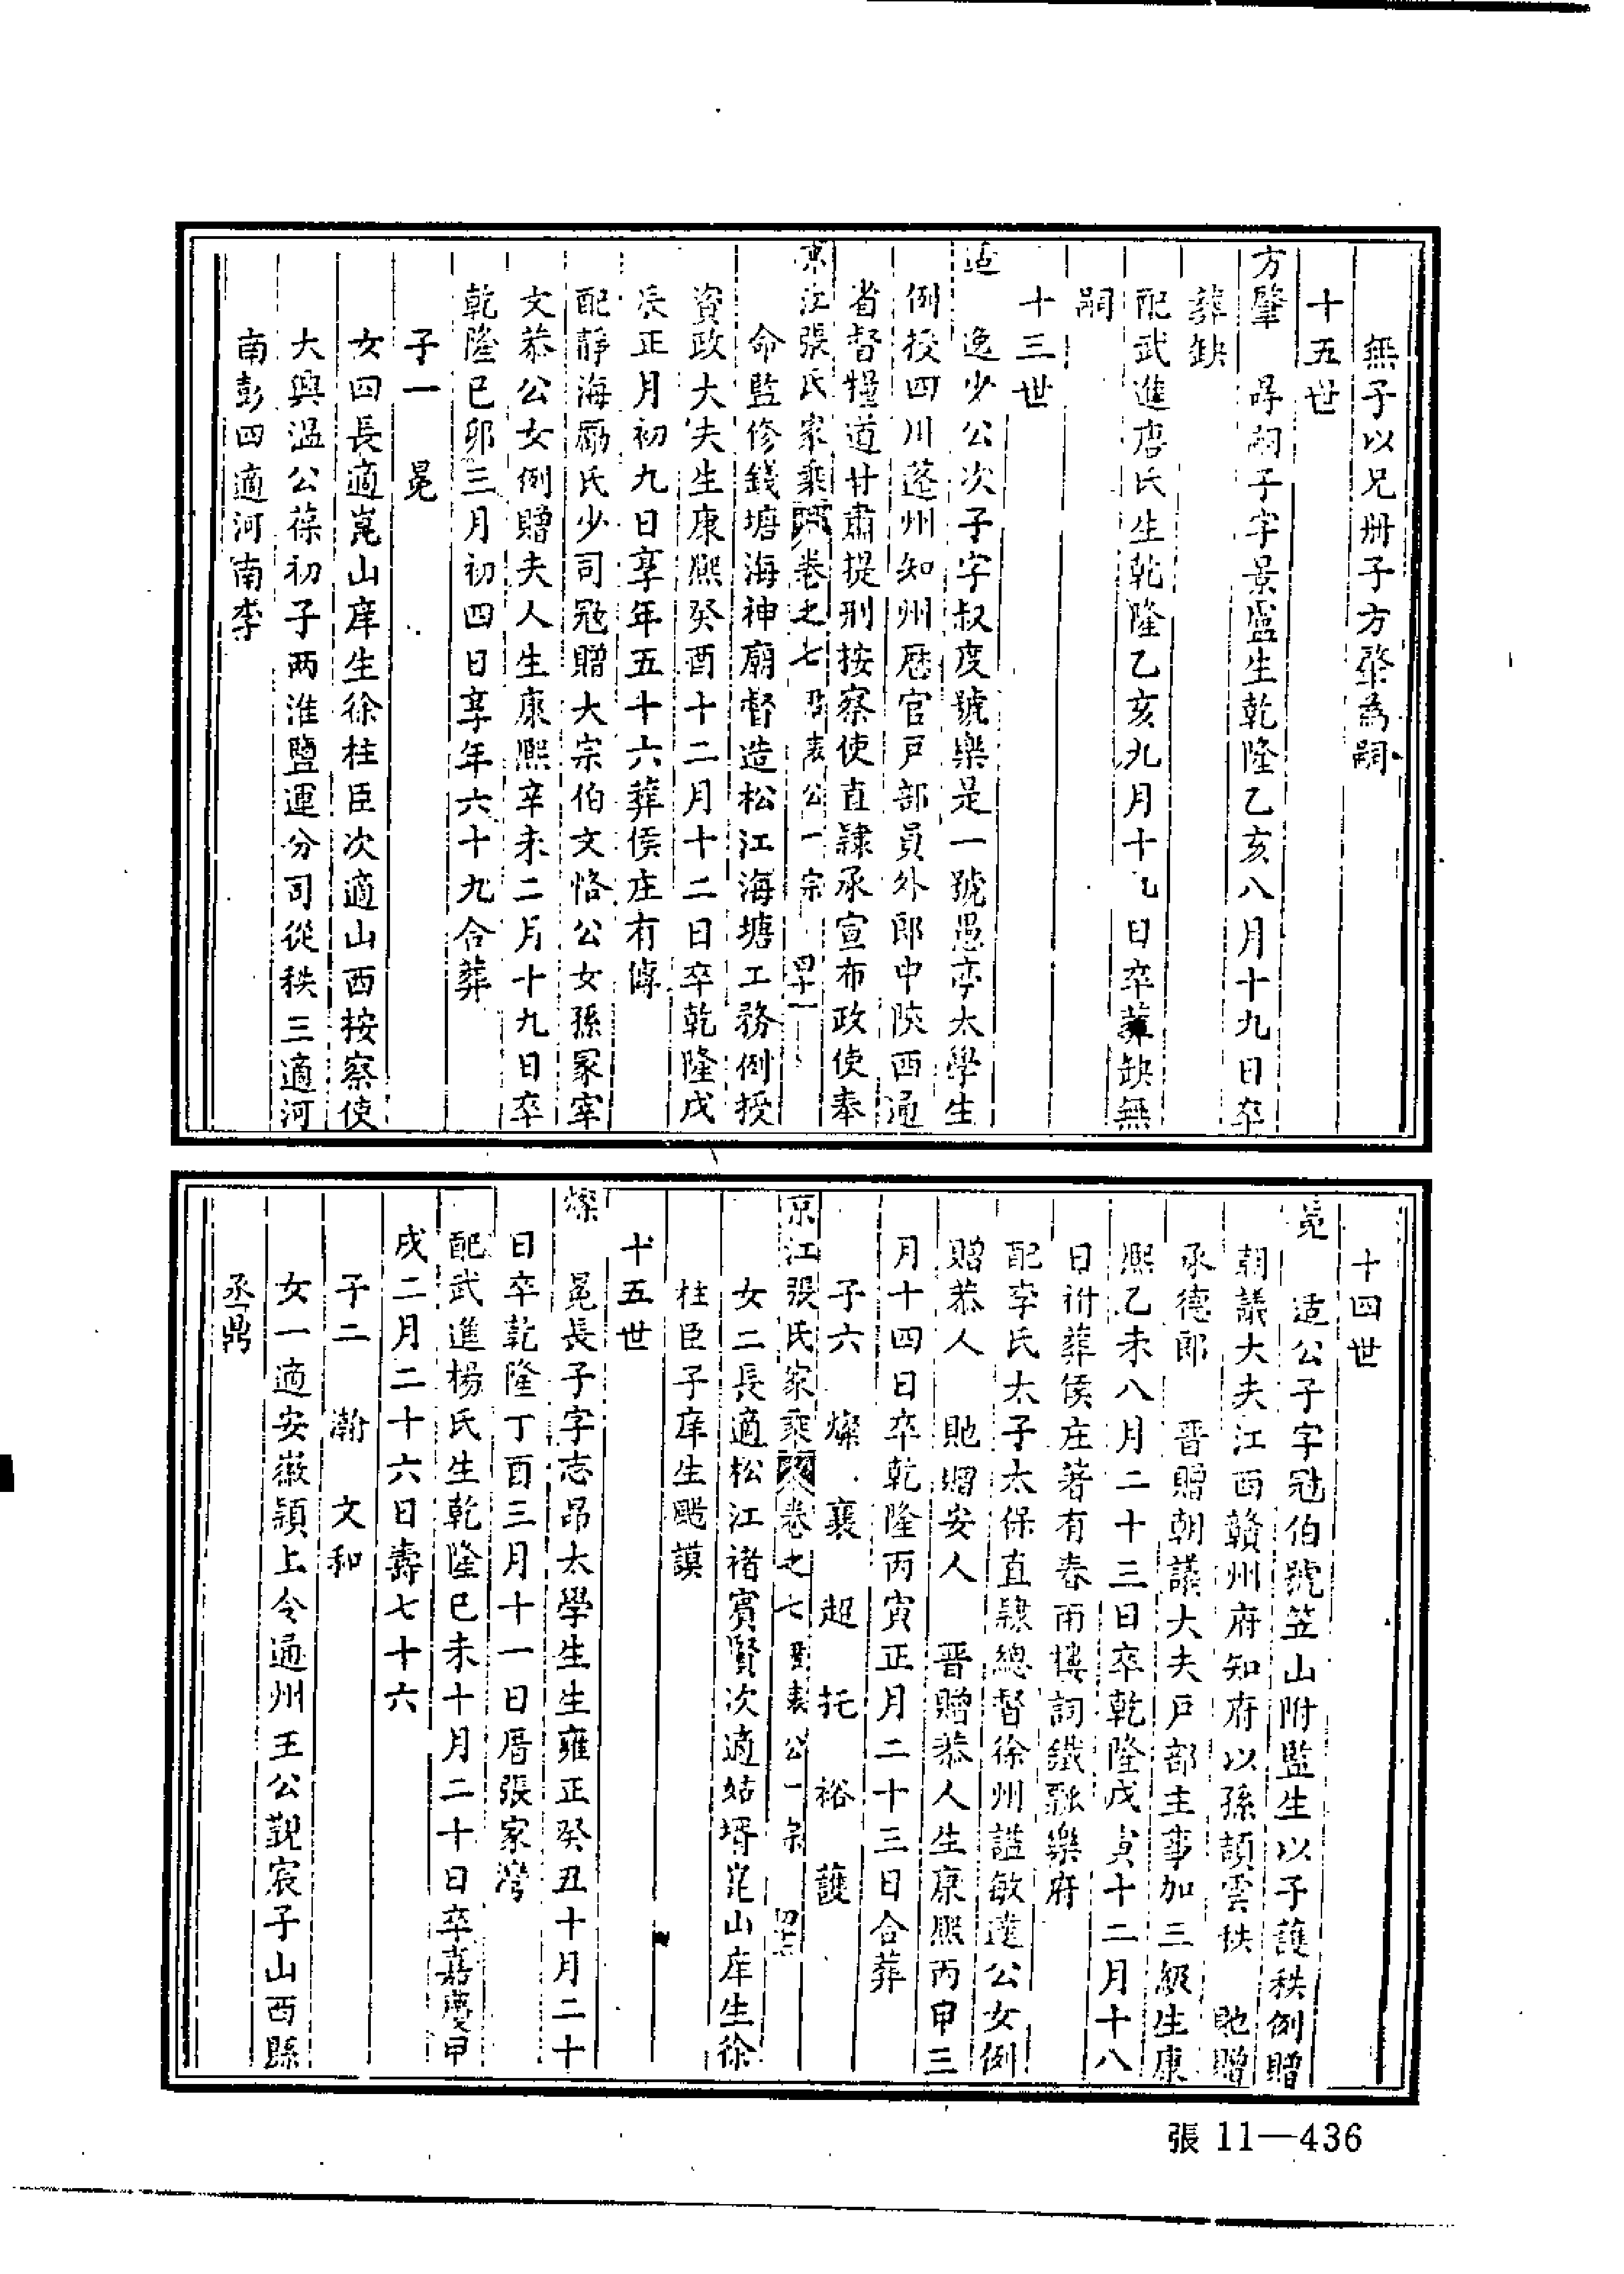 無子以兄册子方肇為嗣
十五世
方肇 冔嗣子字景盧生乾隆乙亥八月十九日卒
葬缺
配武進唐氏生乾隆乙亥九月十九日卒葬缺無
嗣
十三世
适 逸少公次子字叔度號樂是一號愚亭太學生
例授四川蓬州知州歷官戶部員外郎中陝西通
省督糧道甘肅提刑按察使直隸承宣布政使奉
京江張氏家乘 卷之七 公一宗 四十一
命監修錢塘海神廟督造松江海塘工務例授
資政大夫生康熙癸酉十二月十二日卒乾隆戊
辰正月初九日享年五十六葬侯庄有傳
配靜海勵氏少司寇贈大宗伯文恪公女孫冢宰
文恭公女例贈夫人生康熙辛未二月十九日卒
乾隆巳卯三月初四日享年六十九合葬
子一 冕
女四長適崑山庠生徐柱臣次適山西按察使
大興溫公葆初子两淮鹽運分司從秩三適河
南彭四適河南李
十四世
冕 适公子字冠伯號笠山附監生以子護秩例贈
朝議大夫江西贛州府知府以孫頡雲秩 貤贈
承德郎 晋贈朝議大夫戶部主事加三級生康
熙乙未八月二十三日卒乾隆戊寅十二月十八
日祔葬侯庄著有春雨樓詞鐵瓢樂府
配李氏太子太保直隸總督徐州諡敏達公女例
贈恭人 貤贈安人 晋贈恭人生康熙丙申三
月十四日卒乾隆丙寅正月二十三日合葬
子六 燦 襄 超 托 裕 護
京江張氏家乘 卷之七 公一宗
女二長適松江褚賓賢次適姑壻崑山庠生徐
柱臣子庠生颺謨
十五世
燦 冕長子字志昂太學生生雍正癸丑十月二十
日卒乾隆丁酉三月十一日厝張家灣
配武進楊氏生乾隆巳未十月二十日卒嘉慶甲
戌二月二十六日壽七十六
子二 瀚 文和
女一適安徽穎上令通州王公覲宸子山西縣
丞鼎
張 11—436